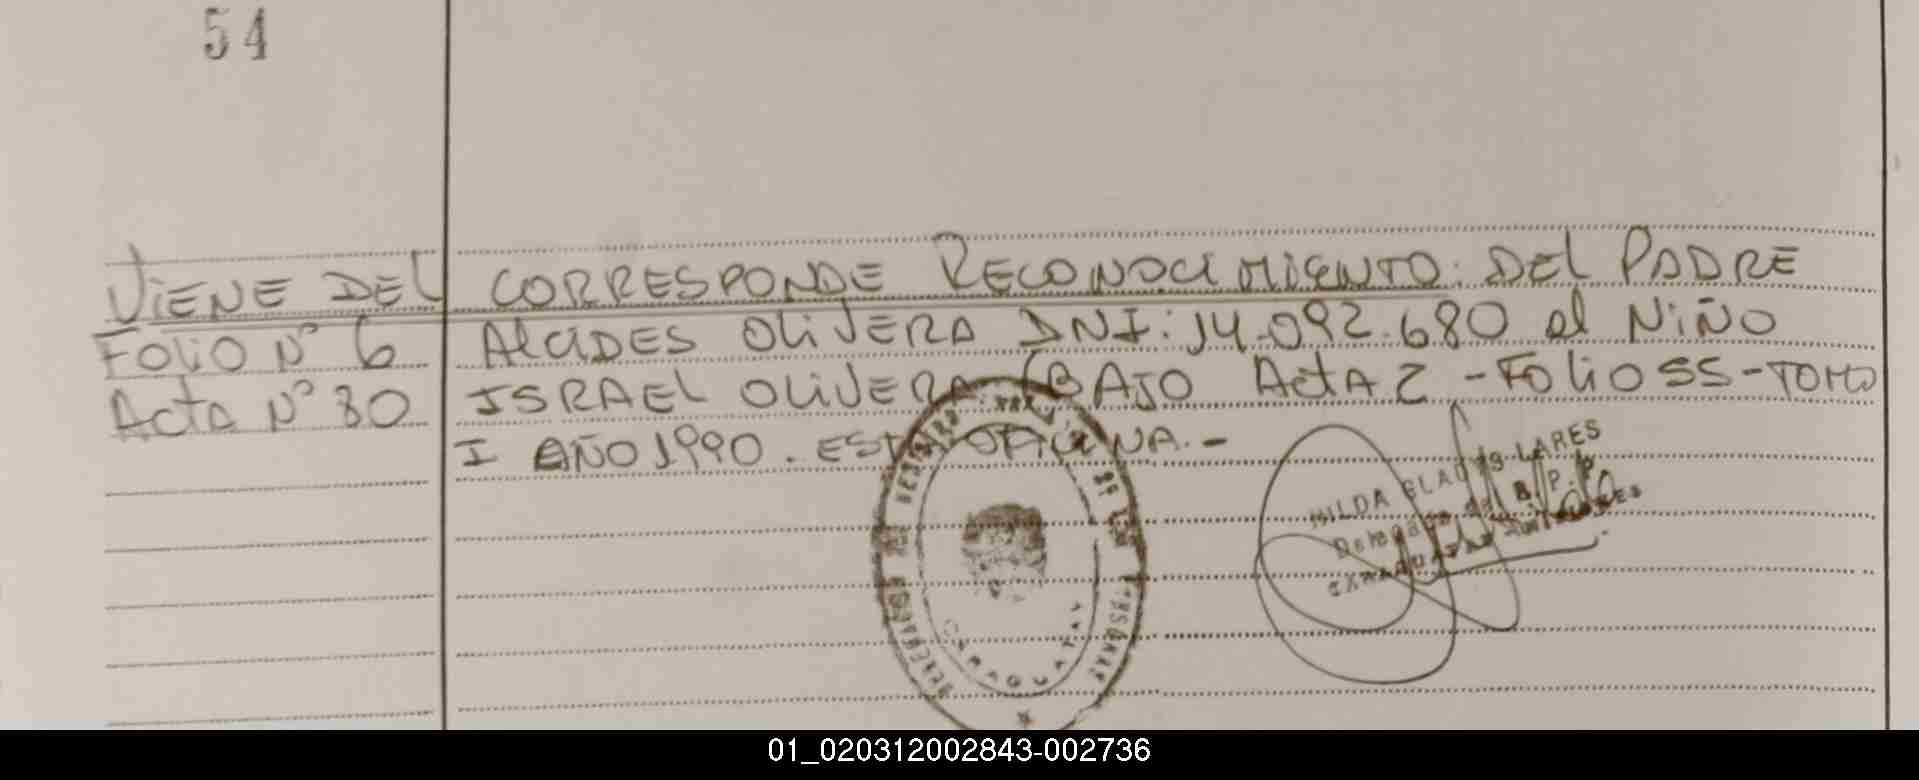 54
VIENE DEL CORRESPONDE RECONOCIMIENTO. DEL PADRE
FOLIO Nº 6 ALCIDES OLIVERA DNI: 14.092.680 al NIÑO
Acta Nº 80 ISRAEL OLIVERA (BAJO ACTA 2 - FOLIO 55 - TOMO
I AÑO 1990. ESTA OFICINA. -
HILDA GLADYS LARES
Delegada del R. P. P.
CARAGUATAY
01_020312002843-002736